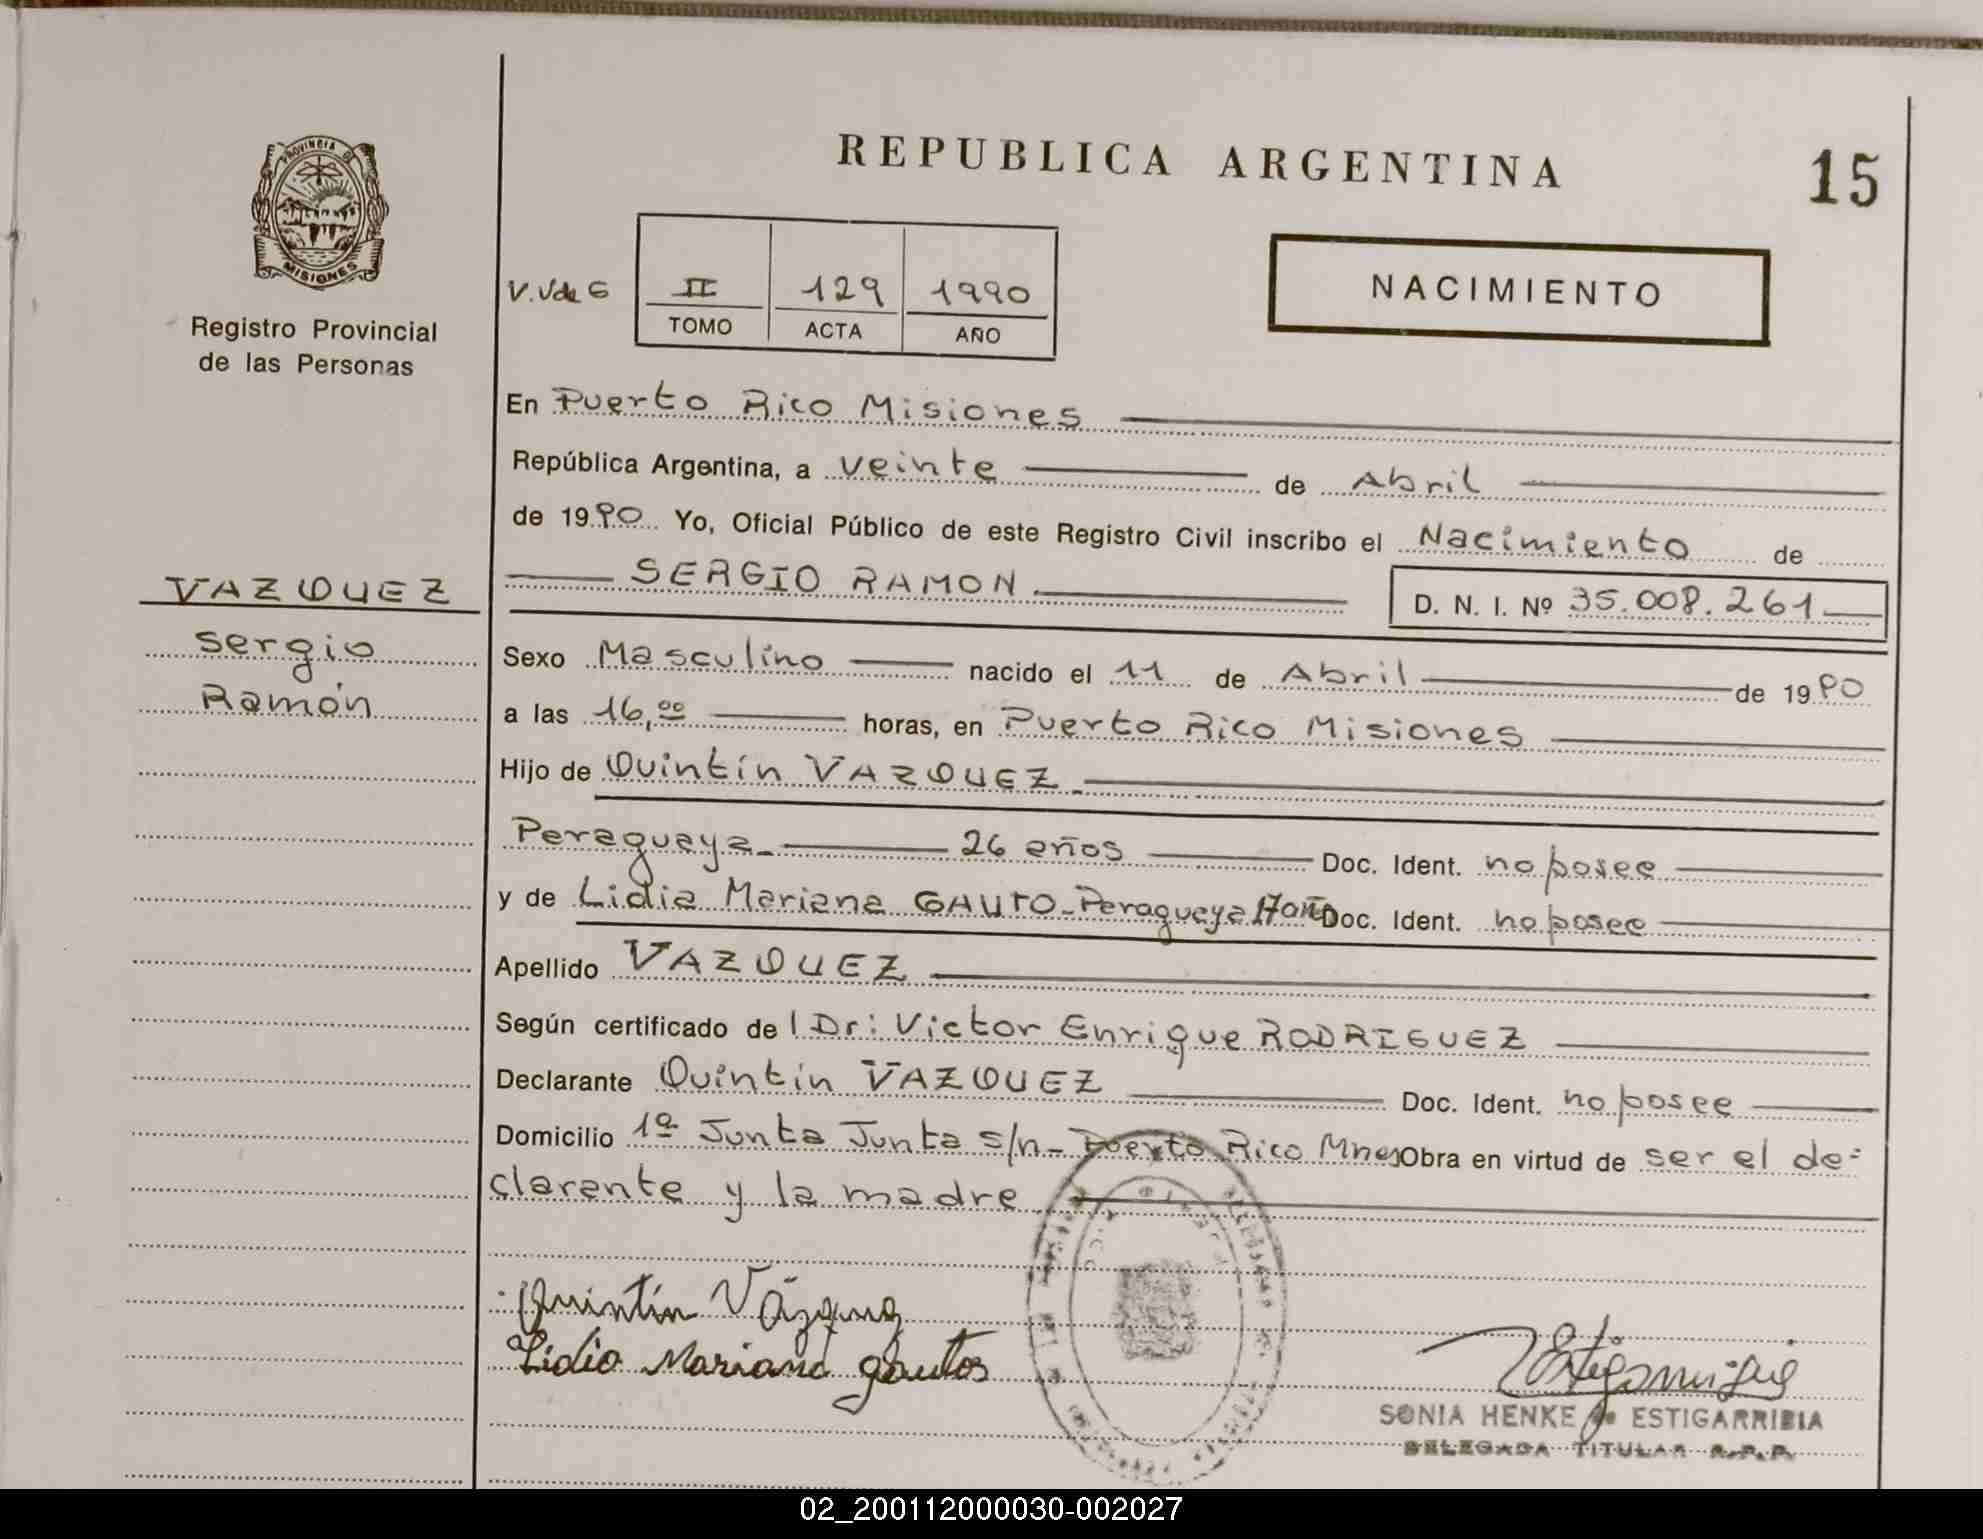 REPUBLICA ARGENTINA
15
PROVINCIA DE
MISIONES
Registro Provincial
de las Personas
V.Vde G
II 129 1990
TOMO ACTA AÑO
NACIMIENTO
En Puerto Rico Misiones
República Argentina, a veinte de Abril
de 1990 Yo, Oficial Público de este Registro Civil inscribo el Nacimiento de
SERGIO RAMON
D. N. I. Nº 35.008.261
VAZQUEZ
Sergio
Ramón
Sexo Masculino nacido el 11 de Abril de 1990
a las 16,00 horas, en Puerto Rico Misiones
Hijo de Quintín VAZQUEZ
Peraguaya 26 años Doc. Ident. no posee
y de Lidia Mariana GAUTO-Peraguaya 17 años Doc. Ident. no posee
Apellido VAZQUEZ
Según certificado de l Dr: Victor Enrique RODRIGUEZ
Declarante Quintín VAZQUEZ Doc. Ident. no posee
Domicilio 1ª Junta Junta s/n- Puerto Rico Mnes Obra en virtud de ser el de=
clarante y la madre
Quintín Vázquez
Lidia Mariana gautos
SONIA HENKE de ESTIGARRIBIA
DELEGADA TITULAR R.P.P.
02_200112000030-002027